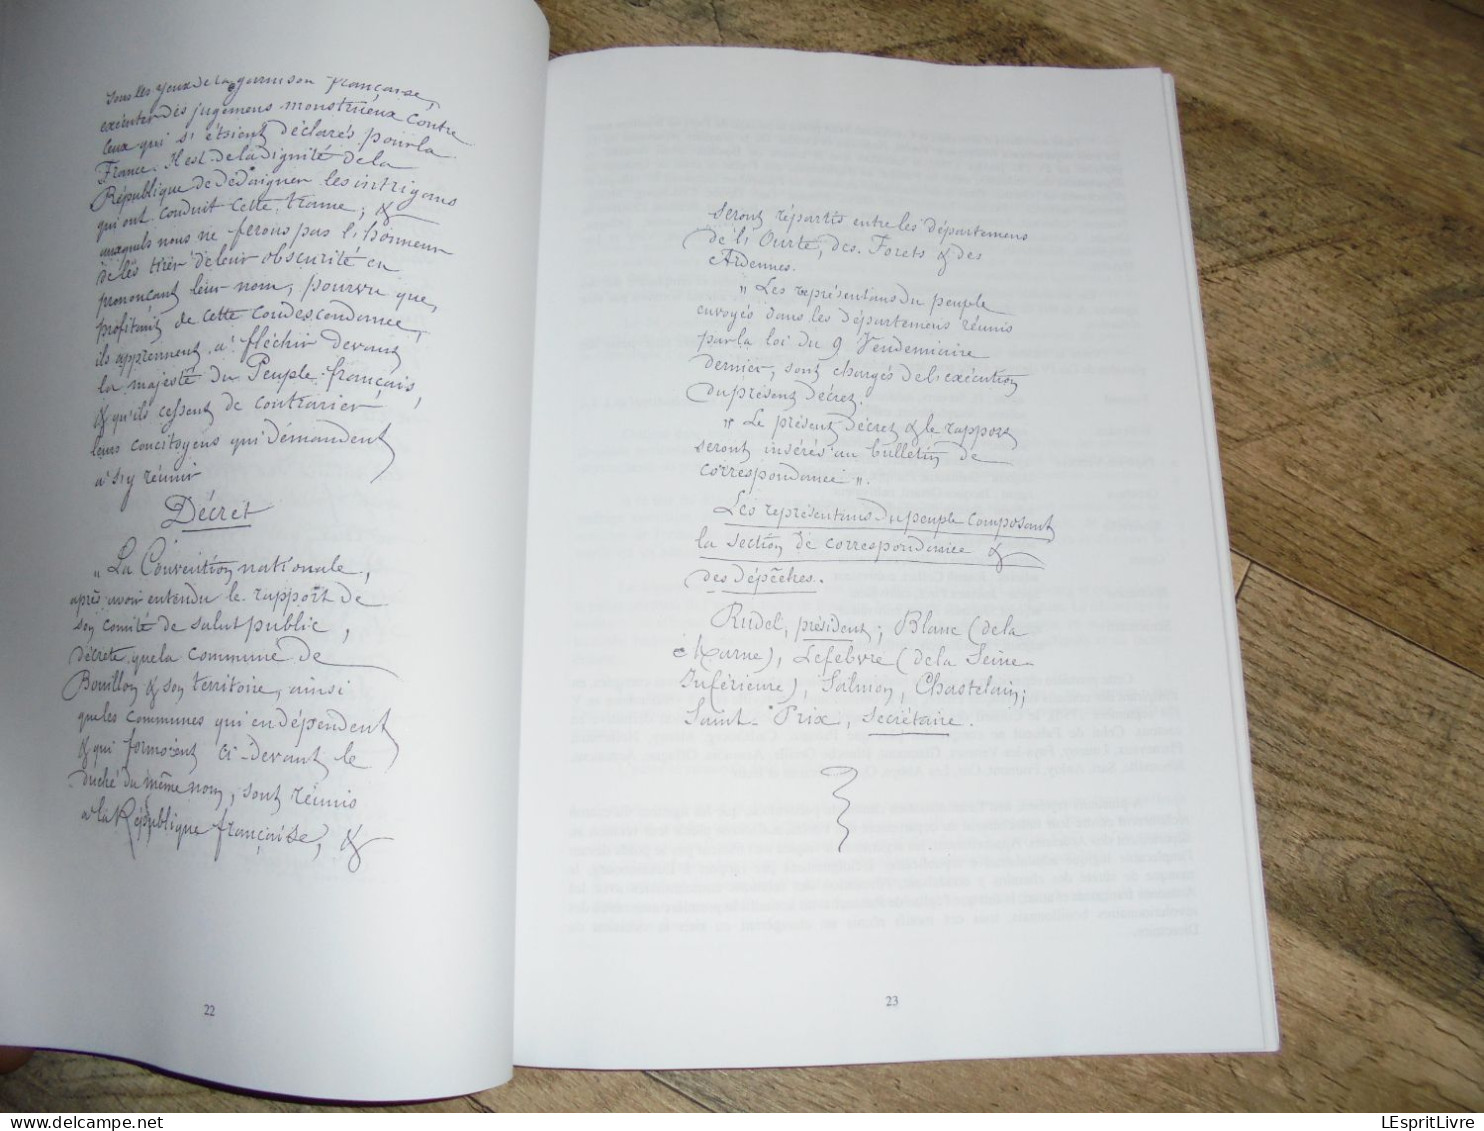 sous les yeux de la garnison française,
exécuter des jugemens monstrueux contre
ceux qui s'étoient déclarés pour la
France. Il est de la dignité de la
République de dédaigner les intrigans
qui ont conduit cette trame, &
auxquels nous ne ferons pas l'honneur
de les tirer de leur obscurité en
prononçant leur nom, pourvu que,
profitant de cette condescendance,
ils apprennent à fléchir devant
la majesté du Peuple français,
& qu'ils cessent de contrarier
leurs concitoyens qui demandent
à s'y réunir
Décret
"La Convention nationale,
après avoir entendu le rapport de
son comité de salut public,
décrète que la commune de
Bouillon & son territoire, ainsi
que les communes qui en dépendent
& qui formoient ci-devant le
duché du même nom, sont réunis
à la République française, &
22
seront répartis entre les départemens
de l'Ourte, des Forets & des
Ardennes.
" Les représentans du peuple
envoyés dans les départemens réunis
par la loi du 9 Vendemiaire
dernier, sont chargés de l'exécution
du présent décret.
" Le présent décret & le rapport
seront insérés au bulletin de
correspondance ".
Les représentans du peuple composant
la section de correspondance &
des dépêches.
Rudel, président; Blanc (de la
Marne), Lefebvre (de la Seine-
Inférieure), Salmon, Chastelain;
Saint-Prix, secrétaire.
23
LEspritLivre